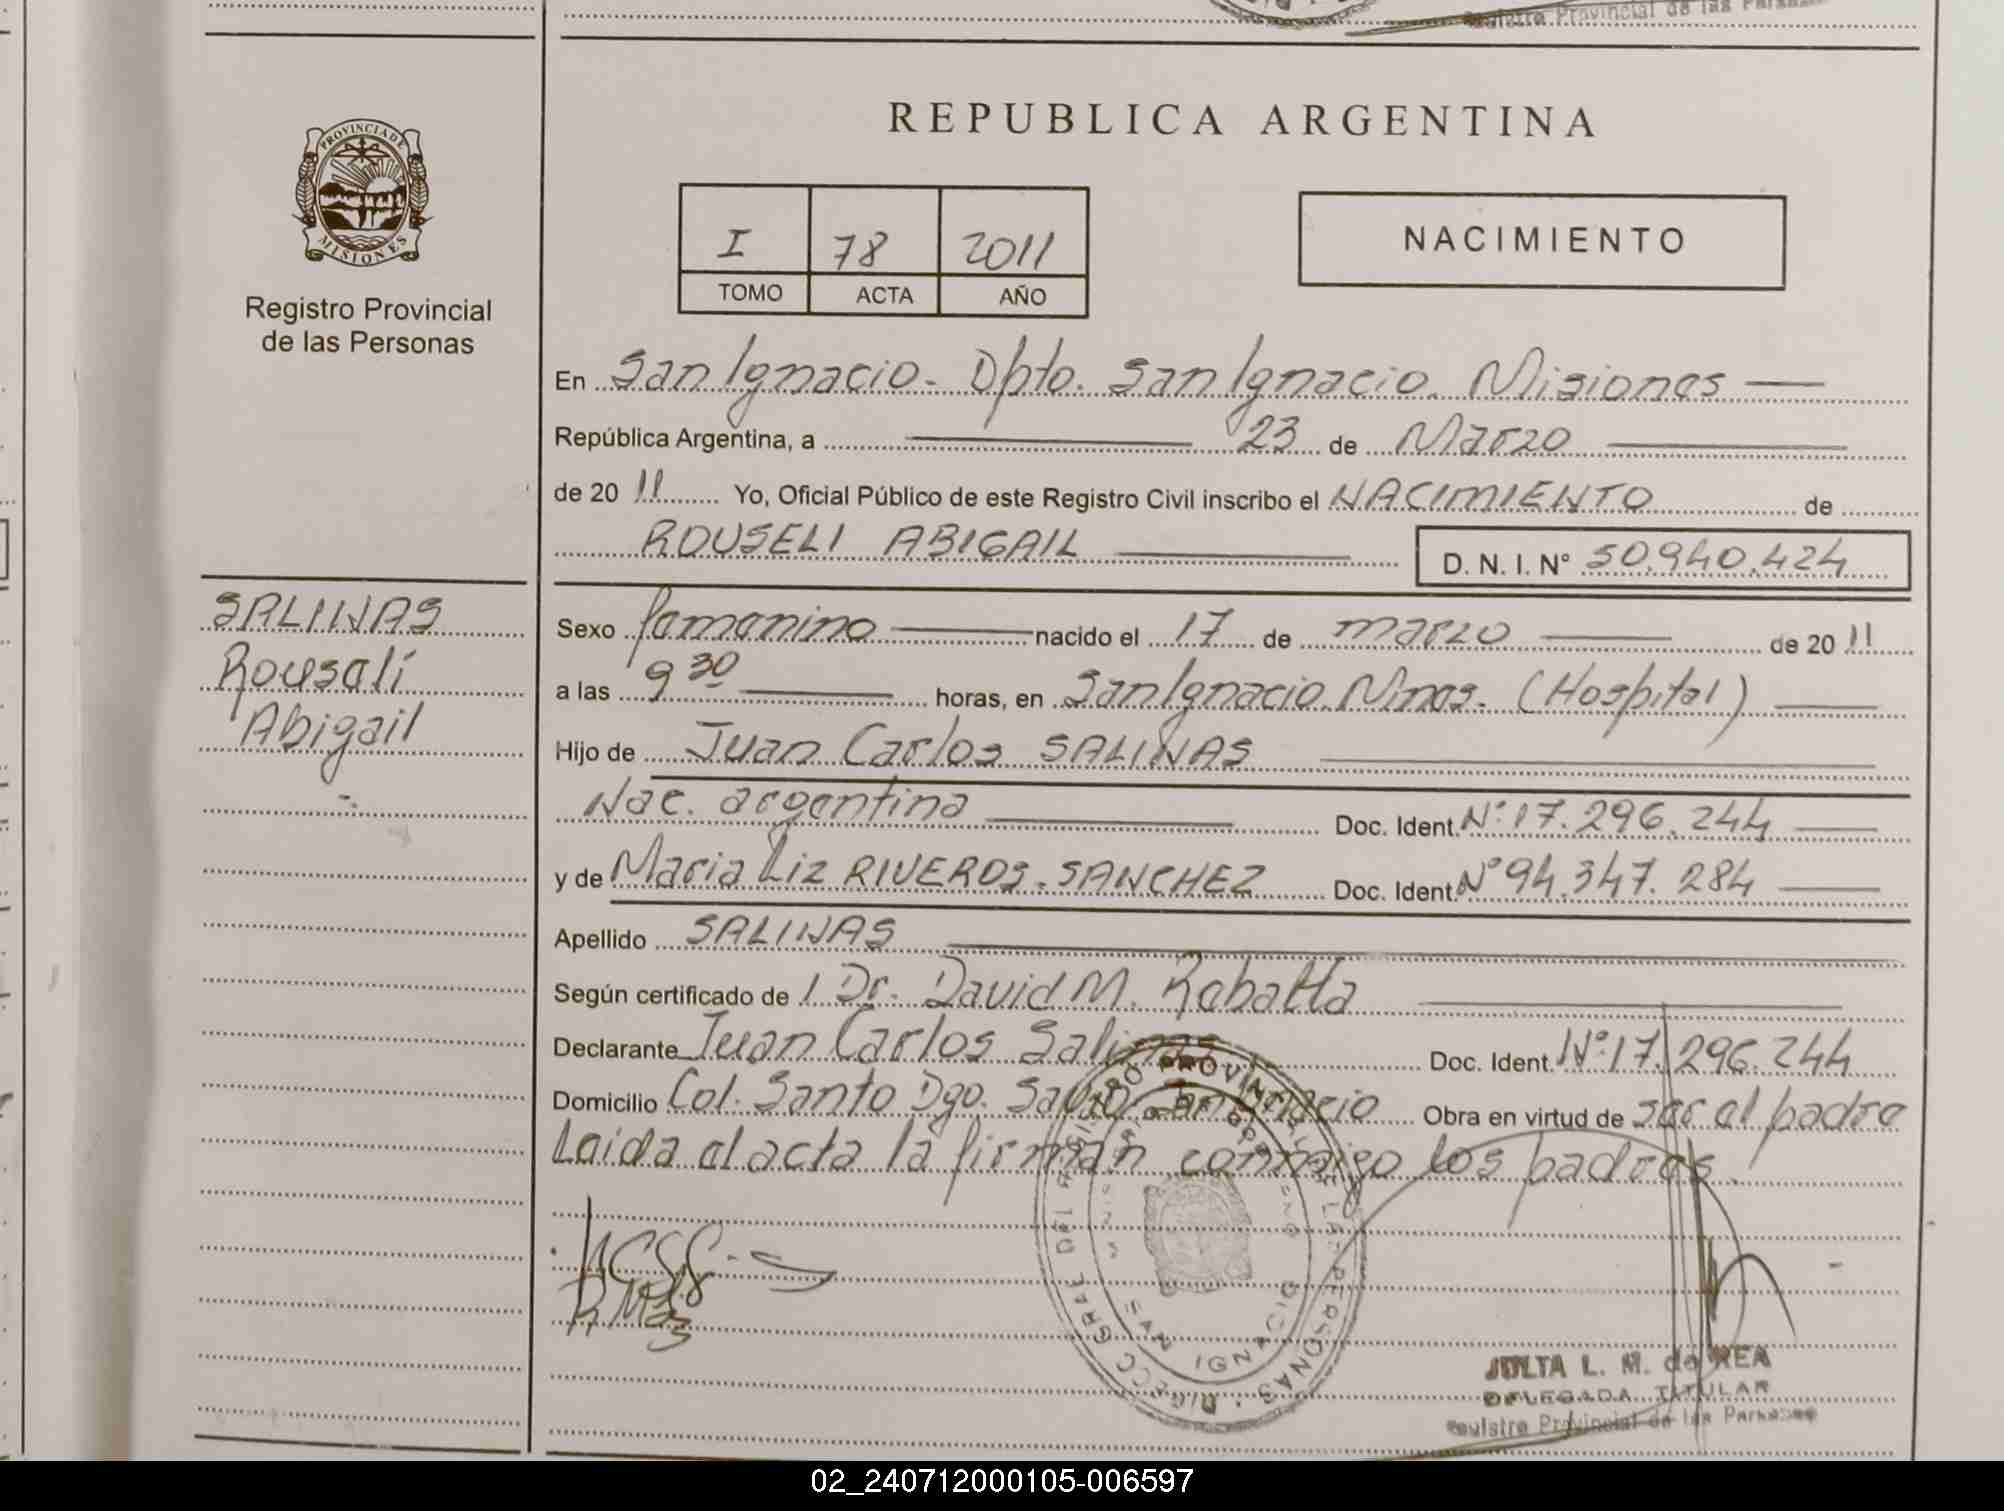 Registro Provincial de las Personas
PROVINCIA DE
MISIONES
Registro Provincial
de las Personas
SALINAS
Rouseli
Abigail
REPUBLICA ARGENTINA
I 78 2011
TOMO ACTA AÑO
NACIMIENTO
En San Ignacio. Dpto. San Ignacio. Misiones
República Argentina, a 23 de Marzo
de 20 11 Yo, Oficial Público de este Registro Civil inscribo el NACIMIENTO de
ROUSELI ABIGAIL D. N. I. N° 50.940.424
Sexo femenino nacido el 17 de marzo de 20 11
a las 9 30 horas, en San Ignacio. Mnes. (Hospital)
Hijo de Juan Carlos SALINAS
Nac. argentina Doc. Ident. N° 17.296.244
y de Maria Liz RIVEROS. SANCHEZ Doc. Ident. N° 94.347.284
Apellido SALINAS
Según certificado de / Dr. David M. Rabatta
Declarante Juan Carlos Salinas Doc. Ident. N° 17.296.244
Domicilio Col. Santo Dgo. San Ignacio Obra en virtud de ser el padre
Leida el acta la firman conmigo los padres.
REGISTRO PROVINCIAL DE LAS PERSONAS
SAN IGNACIO
JULIA L. M. de REA
DELEGADA TITULAR
Registro Provincial de las Personas
02_240712000105-006597